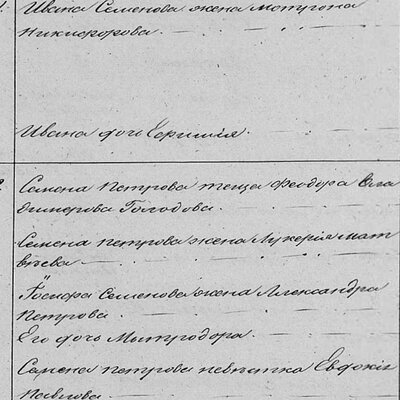 Ивана Семенова жена Матрона
Никифорова.
Ивана дочь
Семена Петрова теща Феодора Вла
димерова
Семена петрова жена Лукерія мат
вѣева
Іосифа Семенова жена Александра
Петрова.
Его дочь Митродора.
Семена петрова невѣстка Евдокія
Павлова